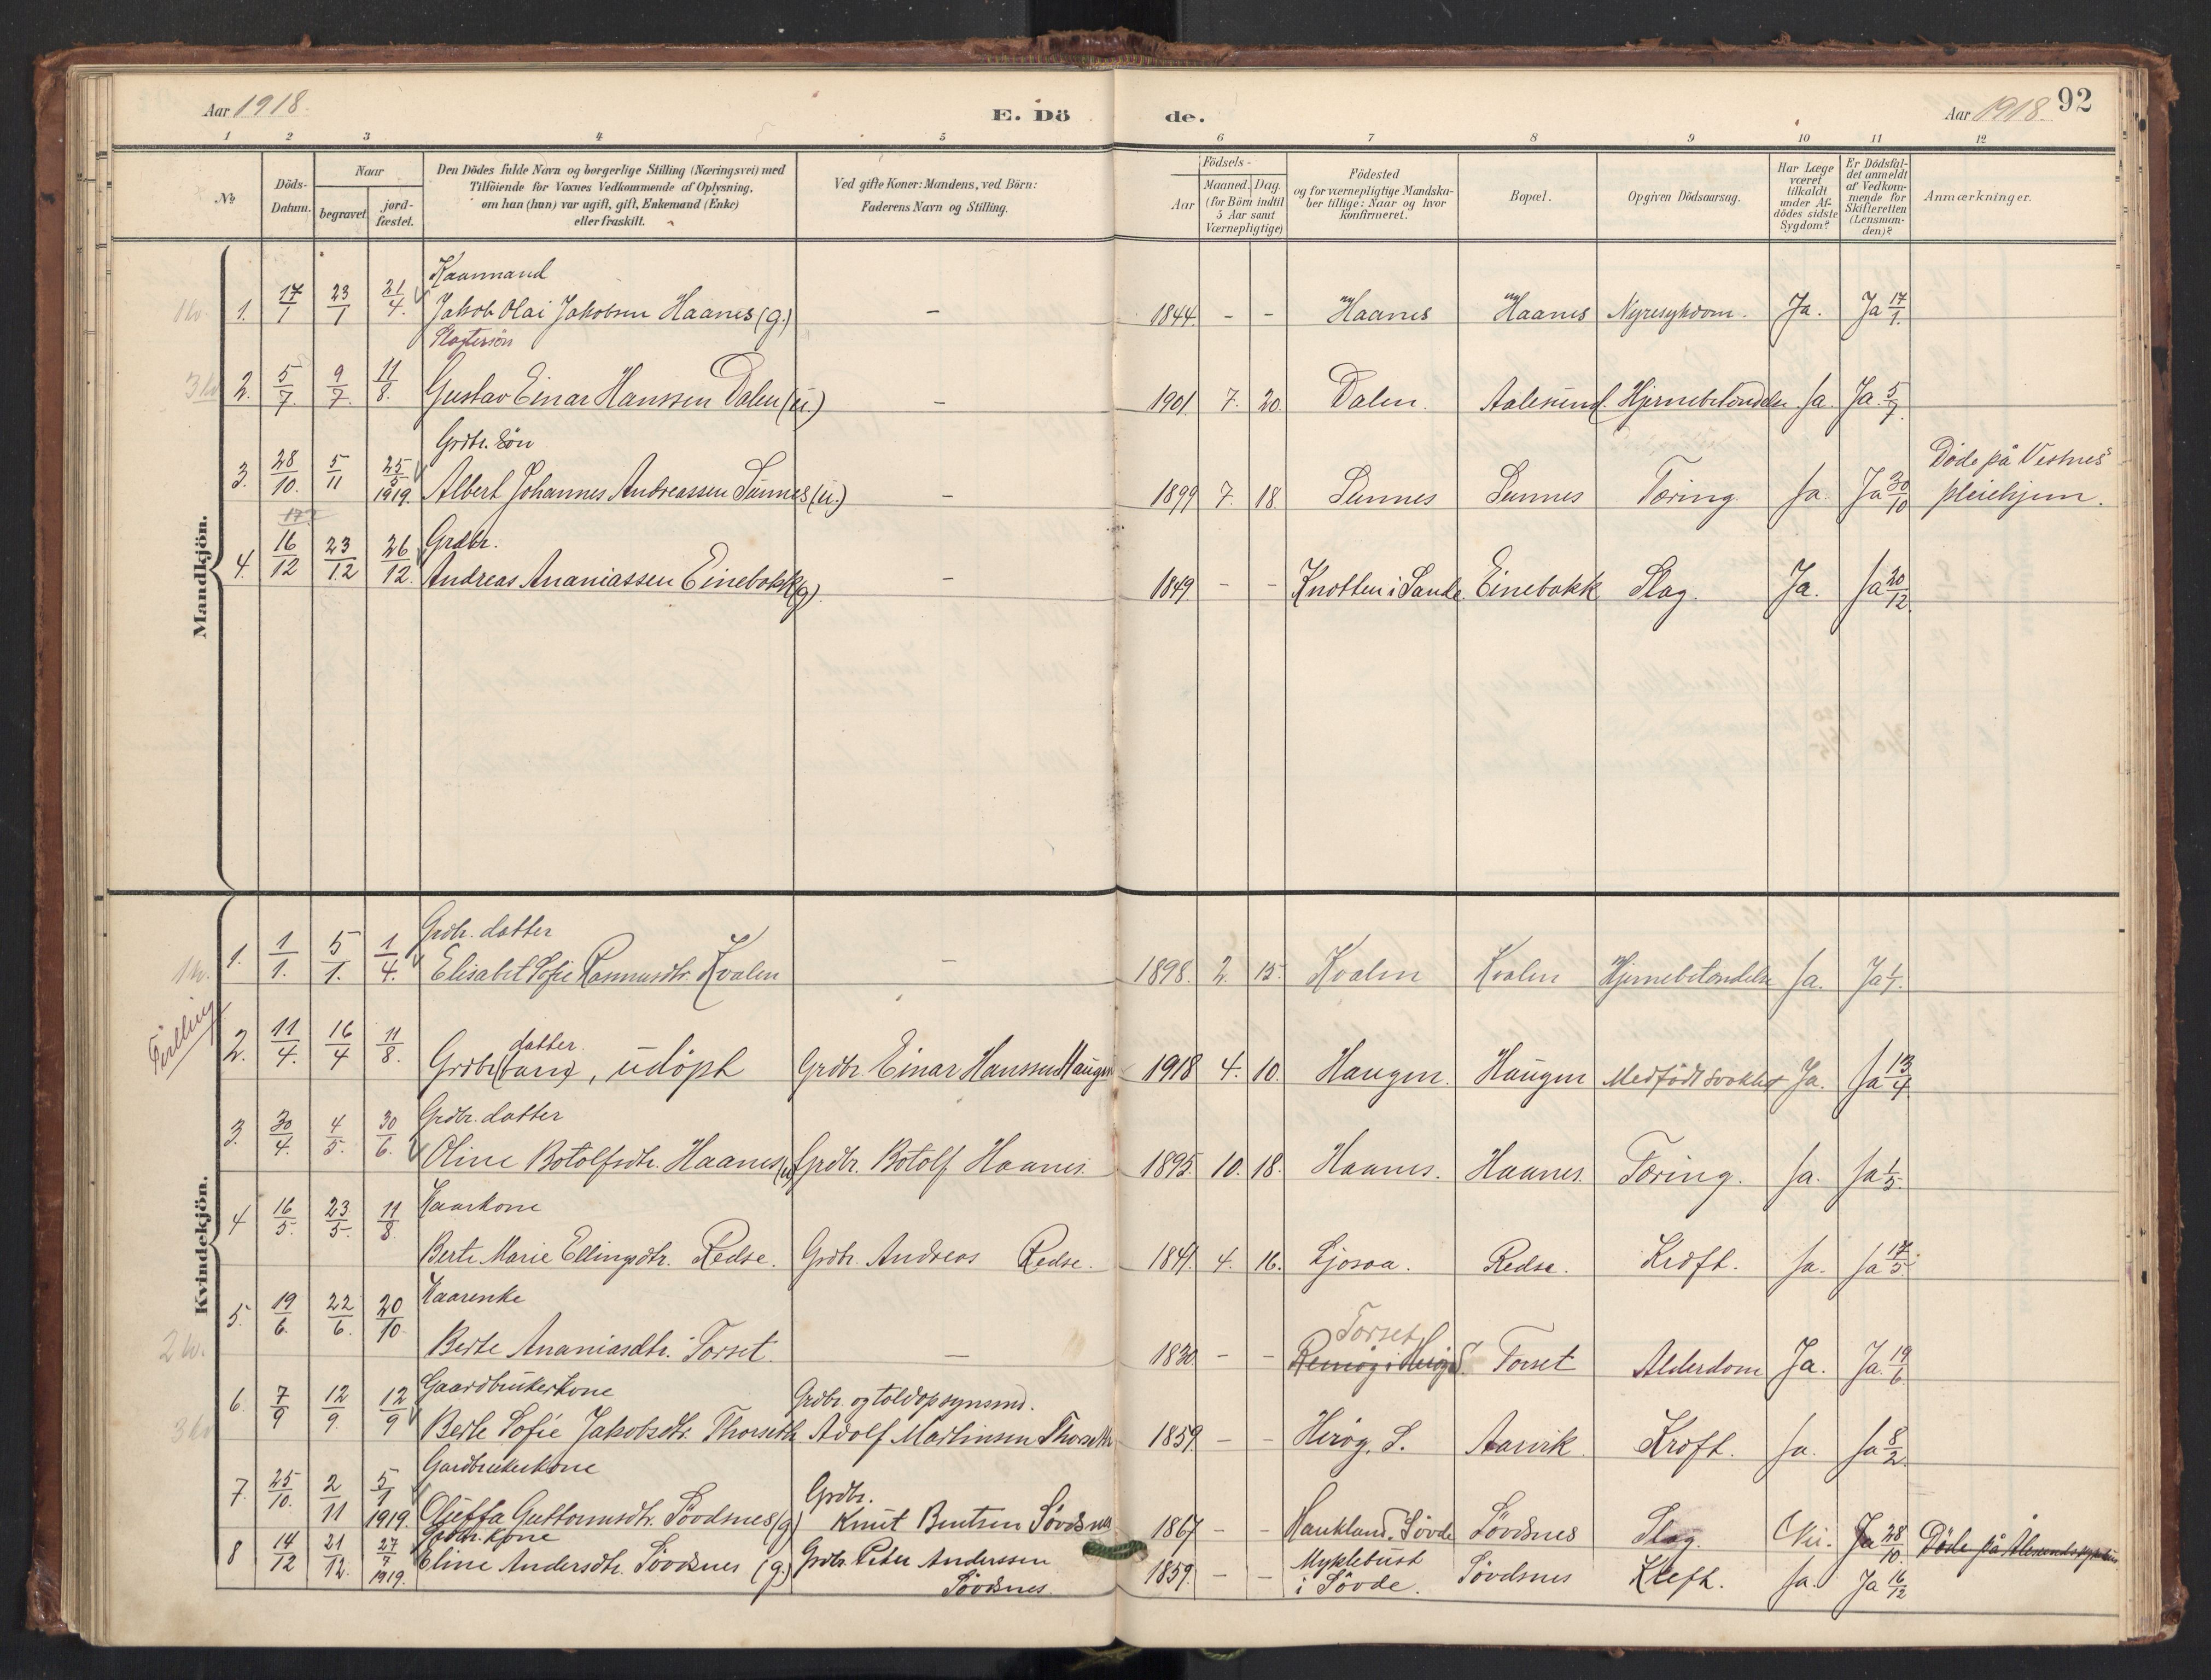 Aar 1918.
E. Dö
de.
Aar 1918.
92
1 2 3 4 5 6 7 8 9 10 11 12
No
Döds-
Datum.
Naar
begravet.
jord-
fæstet.
Den Dödes fulde Navn og borgerlige Stilling (Næringsvei) med
Tilföiende for Voxnes Vedkommende af Oplysning,
om han (hun) var ugift, gift, Enkemand (Enke)
eller fraskilt.
Ved gifte Koner: Mandens, ved Börn:
Faderens Navn og Stilling.
Födsels-
Aar
Maaned. Dag.
(for Börn indtil
5 Aar samt
Værnepligtige)
Födested
og for værnepligtige Mandska-
ber tillige: Naar og hvor
Konfirmeret.
Bopæl.
Opgiven Dödsaarsag.
Har Læge
været
tilkaldt
under Af-
dödes sidste
Sygdom?
Er Dödsfal-
det anmeldt
af Vedkom-
mende for
Skifteretten
(Lensman-
den)?
Anmærkninger.
Mandkjön.
Kaarmand
1. 17/1 23/1 21/4 Jakob Olai Jakobsen Haanes (g.) — 1844. - - Haanes Haanes Nyresykdom. Ja. Ja 17/1.
2. 5/7 9/7. 11/8. Gustav Einar Hanssen Dalen (u.) — 1901. 7. 20. Dalen. Aalesund. Hjernebetændelse Ja. Ja. 5/7.
Grdbr. søn
3. 28/10. 5/11 25/5 1919. Albert Johannes Andreassen Sunnes (u.) — 1899 7. 18. Sunnes Sunnes Tæring. Ja. Ja 30/10
Døde på Vestnes
pleiehjem.
Grdbr.
4. 16/12 23/12 26/12. Andreas Ananiassen Einebakk (g) — 1849 - - Knotten i Sande Einebakk Slag. Ja. Ja 20/12.
Kvindekjön.
Grdbr. datter
1. 1/1. 5/1. 1/4. Elisabet Sofie Rasmusdtr. Kvalen — 1898. 2. 15. Kvalen Kvalen Hjernebetændelse Ja. Ja 1/1.
Tvilling
datter
2. 11/4. 16/4 11/8. Grdbr. (barn), udøpt Grdbr. Einar Hanssen Haugen 1918 4. 10. Haugen. Haugen Medfødt svakhet Ja. Ja 13/4.
Grdbr. datter
3. 30/4. 4/5. 30/6. Oline Botolfsdtr. Haanes (u) Grdbr. Botolf Haanes. 1895. 10. 18. Haanes. Haanes. Tæring. Ja. Ja 1/5.
Kaarkone
4 16/5. 23/5. 11/8. Berte Marie Ellingsdtr. Redse. Grdbr. Andreas Redse. 1841. 4. 16. Ljosaa. Redse. Kræft. Ja. Ja 17/5.
Kaarenke
Torset
5. 19/6. 22/6. 20/10. Berte Ananiasdtr. Torset. — 1830. - - Remøy i Herøy S. Torset Alderdom Ja. Ja. 19/6.
Gaardbrukerkone Grdbr. og toldopsynsmd.
6. 7/9 12/9. 12/9 Berte Sofie Jakobsdtr. Thorseth Adolf Martinsen Thorseth 1859. - - Herøy. S. Aarvik Kræft. Ja. Ja 8/2.
Gardbrukerkone Grdbr.
7. 25/10. 2/11 5/1 1919. Oluffa Guttormsdtr. Søvdsnes (g) Knut Bentsen Søvdsnes 1867 - - Haukland, Søvde Søvdsnes Slag. Nei. Ja 28/10. Døde på Ålesunds sykehus
Grdbr. kone
8 14/12 21/12. 27/7 1919. Eline Andersdtr. Søvdsnes (g.) Grdbr. Peter Anderssen
Søvdsnes.
1859. - - Myklebust
i Søvde. Søvdsnes Kreft. Ja. Ja 16/12